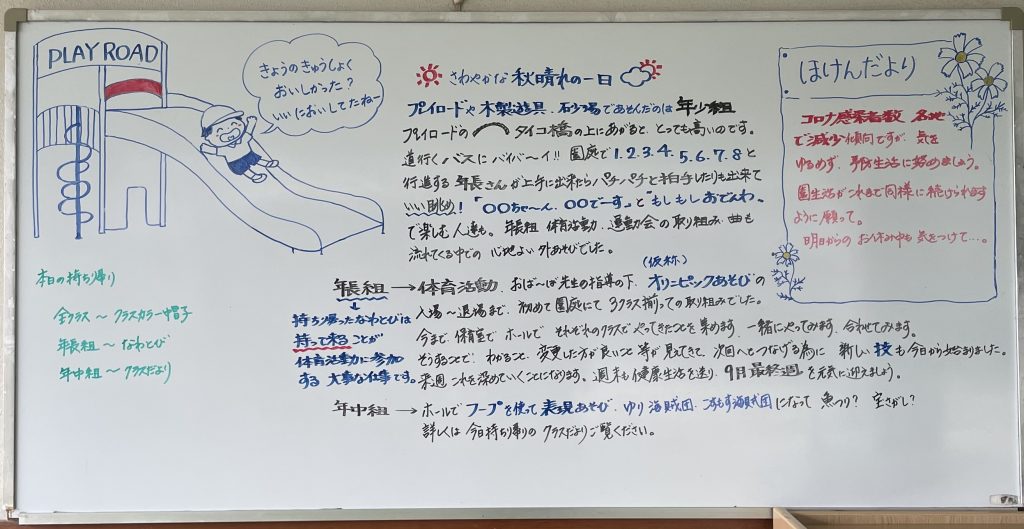 PLAY ROAD
きょうのきゅうしょく
おいしかった?
いいにおいしてたねー
さわやかな 秋晴れの一日
プレイロードや 木製遊具、石砂場であそんだのは 年少組
プレイロードの タイコ橋の上にあがると、とっても高いのです。
道行く バスに バイバ〜イ!! 園庭で 1.2.3.4. 5.6.7.8と
行進する 年長さんが上手に出来たら パチパチと拍手したりも出来て
いい眺め! "〇〇ちゃ〜ん、〇〇でーす"と"もしもしおでんわ"
で楽しむ人達も。年長組 体育活動、運動会の取り組み、曲も
流れてくる中での 心地よい外あそびでした。
ほけんだより
コロナ感染者数 各地
で減少傾向ですが、気を
ゆるめず、予防生活に努めましょう。
園生活がこれまで同様に続けられます
ように願って。
明日からの お休み中も 気をつけて…。
本日の持ち帰り
全クラス〜クラスカラー帽子
年長組〜なわとび
年中組〜クラスだより
年長組→体育活動、おば〜ば先生の指導の下、オリニピックあそびの
(仮称)
入場〜退場まで、初めて園庭にて 3クラス揃っての取り組みでした。
今まで、保育室で ホールで それぞれのクラスで やってきたことを集めます、一緒にやってみます、合わせてみます。
そうすることで、わかること、変更した方が良いこと等が見えてきて、次回へとつなげる為に 新しい技も今日から始まりました。
来週 これを深めていくことになります。週末も健康生活を送り、9月最終週を元気に迎えましょう。
持ち帰ったなわとびは
持って来ることが
体育活動に参加
する 大事な仕事です。
年中組→ホールで フープを使って表現あそび、ゆり海賊団、こすもす海賊団になって 魚つり? 宝さがし?
詳しくは 今日持ち帰りの クラスだよりご覧ください。